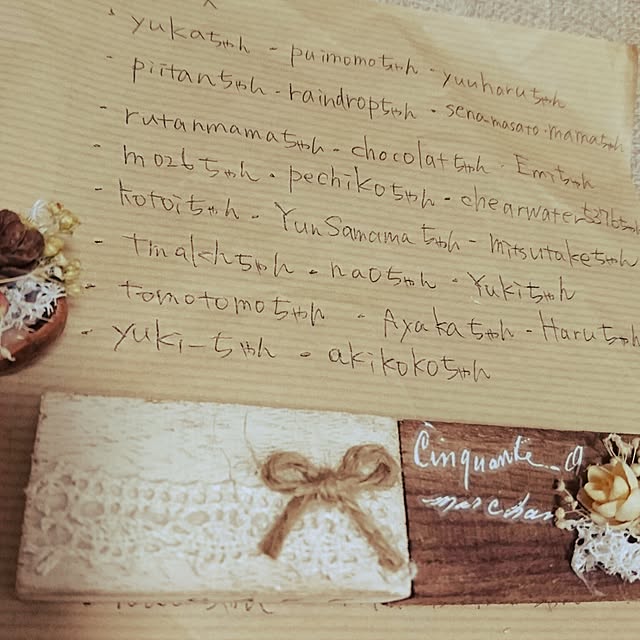 ・yukaちゃん - puimomoちゃん - yuuharuちゃん
・piitanちゃん - raindropちゃん・senamasato.mamaちゃん
・rutanmamaちゃん - chocolatちゃん・Emiちゃん
・mozbちゃん・pechikoちゃん - chearwater5376ちゃん
・kotoiちゃん - YunSamamaちゃん - mitsutakeちゃん
・tmalchちゃん・naoちゃん・Yukiちゃん
・tomotomoちゃん - Ayakaちゃん - Haruちゃん
・yuki-ちゃん・akikokoちゃん
Cinquante_a
marchan